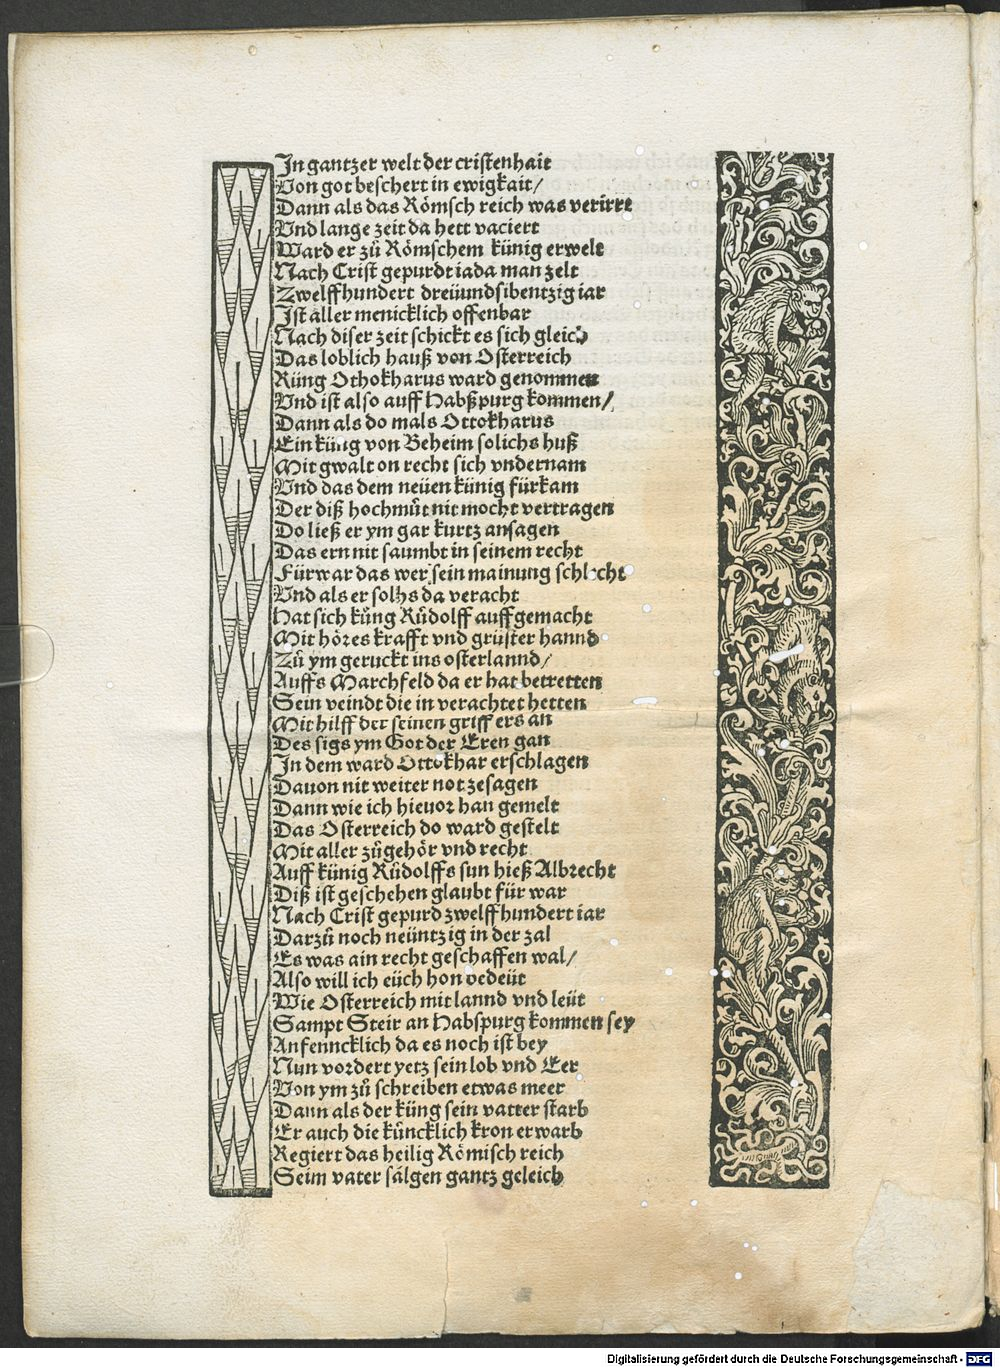 In gantzer welt der cristenhait
Von got beschert in ewigkait/
Dann als das Römsch reich was verirrt
Vnd lange zeit da hett vaciert
Ward er zů Römschem künig erwelt
Nach Crist gepurdt iada man zelt
Zwelffhundert dreüundsibentzig iar
Ist aller menicklich offenbar
Nach diser zeit schickt es sich gleich
Das loblich hauß von Osterreich
Küng Othokharus ward genommen
Vnd ist also auff Habßpurg kommen/
Dann als do mals Ottokharus
Ein küng von Beheim solichs huß
Mit gwalt on recht sich vndernam
Vnd das dem neüen künig fürkam
Der diß hochmůt nit mocht vertragen
Do ließ er ym gar kurtz ansagen
Das ern nit saumbt in seinem recht
Fürwar das wer sein mainung schlecht
Vnd als er solhs da veracht
Hat sich küng Růdolff auffgemacht
Mit höres krafft vnd grüster hannd
Zů ym geruckt ins osterlannd/
Auffs Marchfeld da er hat betretten
Sein veindt die in verachtet hetten
Mit hilff der seinen griff ers an
Des sigs ym Got der Eren gan
In dem ward Ottokhar erschlagen
Dauon nit weiter not zesagen
Dann wie ich hieuor han gemelt
Das Osterreich do ward gestelt
Mit aller zůgehör vnd recht
Auff künig Růdolffs sun hieß Albrecht
Diß ist geschehen glaubt für war
Nach Crist gepurd zwelffhundert iar
Darzů noch neüntzig in der zal
Es was ain recht geschaffen wal/
Also will ich eüch hon bedeüt
Wie Osterreich mit lannd vnd leüt
Sampt Steir an Habspurg kommen sey
Anfenncklich da es noch ist bey
Nun vordert yetz sein lob vnd Eer
Von ym zů schreiben etwas meer
Dann als der küng sein vatter starb
Er auch die küncklich kron erwarb
Regiert das heilig Römisch reich
Seim vater sälgen gantz geleich
Digitalisierung gefördert durch die Deutsche Forschungsgemeinschaft - DFG